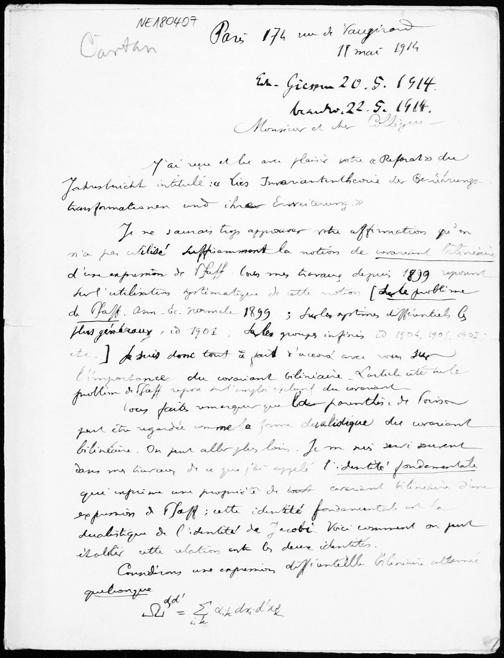 NE180407
Cartan
Paris 174 rue de Vaugirard
18 mai 1914
Giessen 20.5.1914.
22.5.1914.
Monsieur et cher Collègue
J'ai reçu et lu avec plaisir votre « Referat » du
Jahresbericht intitulé : « Lies Invariantentheorie der Berührungs-
transformationen und ihre Erweiterung. »
Je ne saurais trop approuver votre affirmation qu'on
n'a pas utilisé suffisamment la notion de covariant bilinéaire
d'une expression de Pfaff. Tous mes travaux depuis 1899 reposent
sur l'utilisation systématique de cette notion [Sur le problème
de Pfaff. Ann. Ec. normale 1899 ; Sur les systèmes différentiels les
plus généraux, id 1901. Sur les groupes infinis id 1904, 1905,
etc.] Je suis donc tout à fait d'accord avec vous sur
l'importance du covariant bilinéaire. L'article sur le
problème de Pfaff repose sur l'emploi du covariant
Vous faites remarquer que les parenthèses de Poisson
peut être regardée comme la forme dualistique du covariant
bilinéaire. On peut aller plus loin. Je me suis servi souvent
dans mes travaux de ce que j'ai appelé l'identité fondamentale
qui exprime une propriété de tout covariant bilinéaire d'une
expression de Pfaff ; cette identité fondamentale est la
dualistique de l'identité de Jacobi. Voici comment on peut
établir cette relation entre les deux identités.
Considérons une expression différentielle bilinéaire alternée
quelconque
Ω^{dd'} = Σ_{i,k} a_{ik} dx_i d'x_k